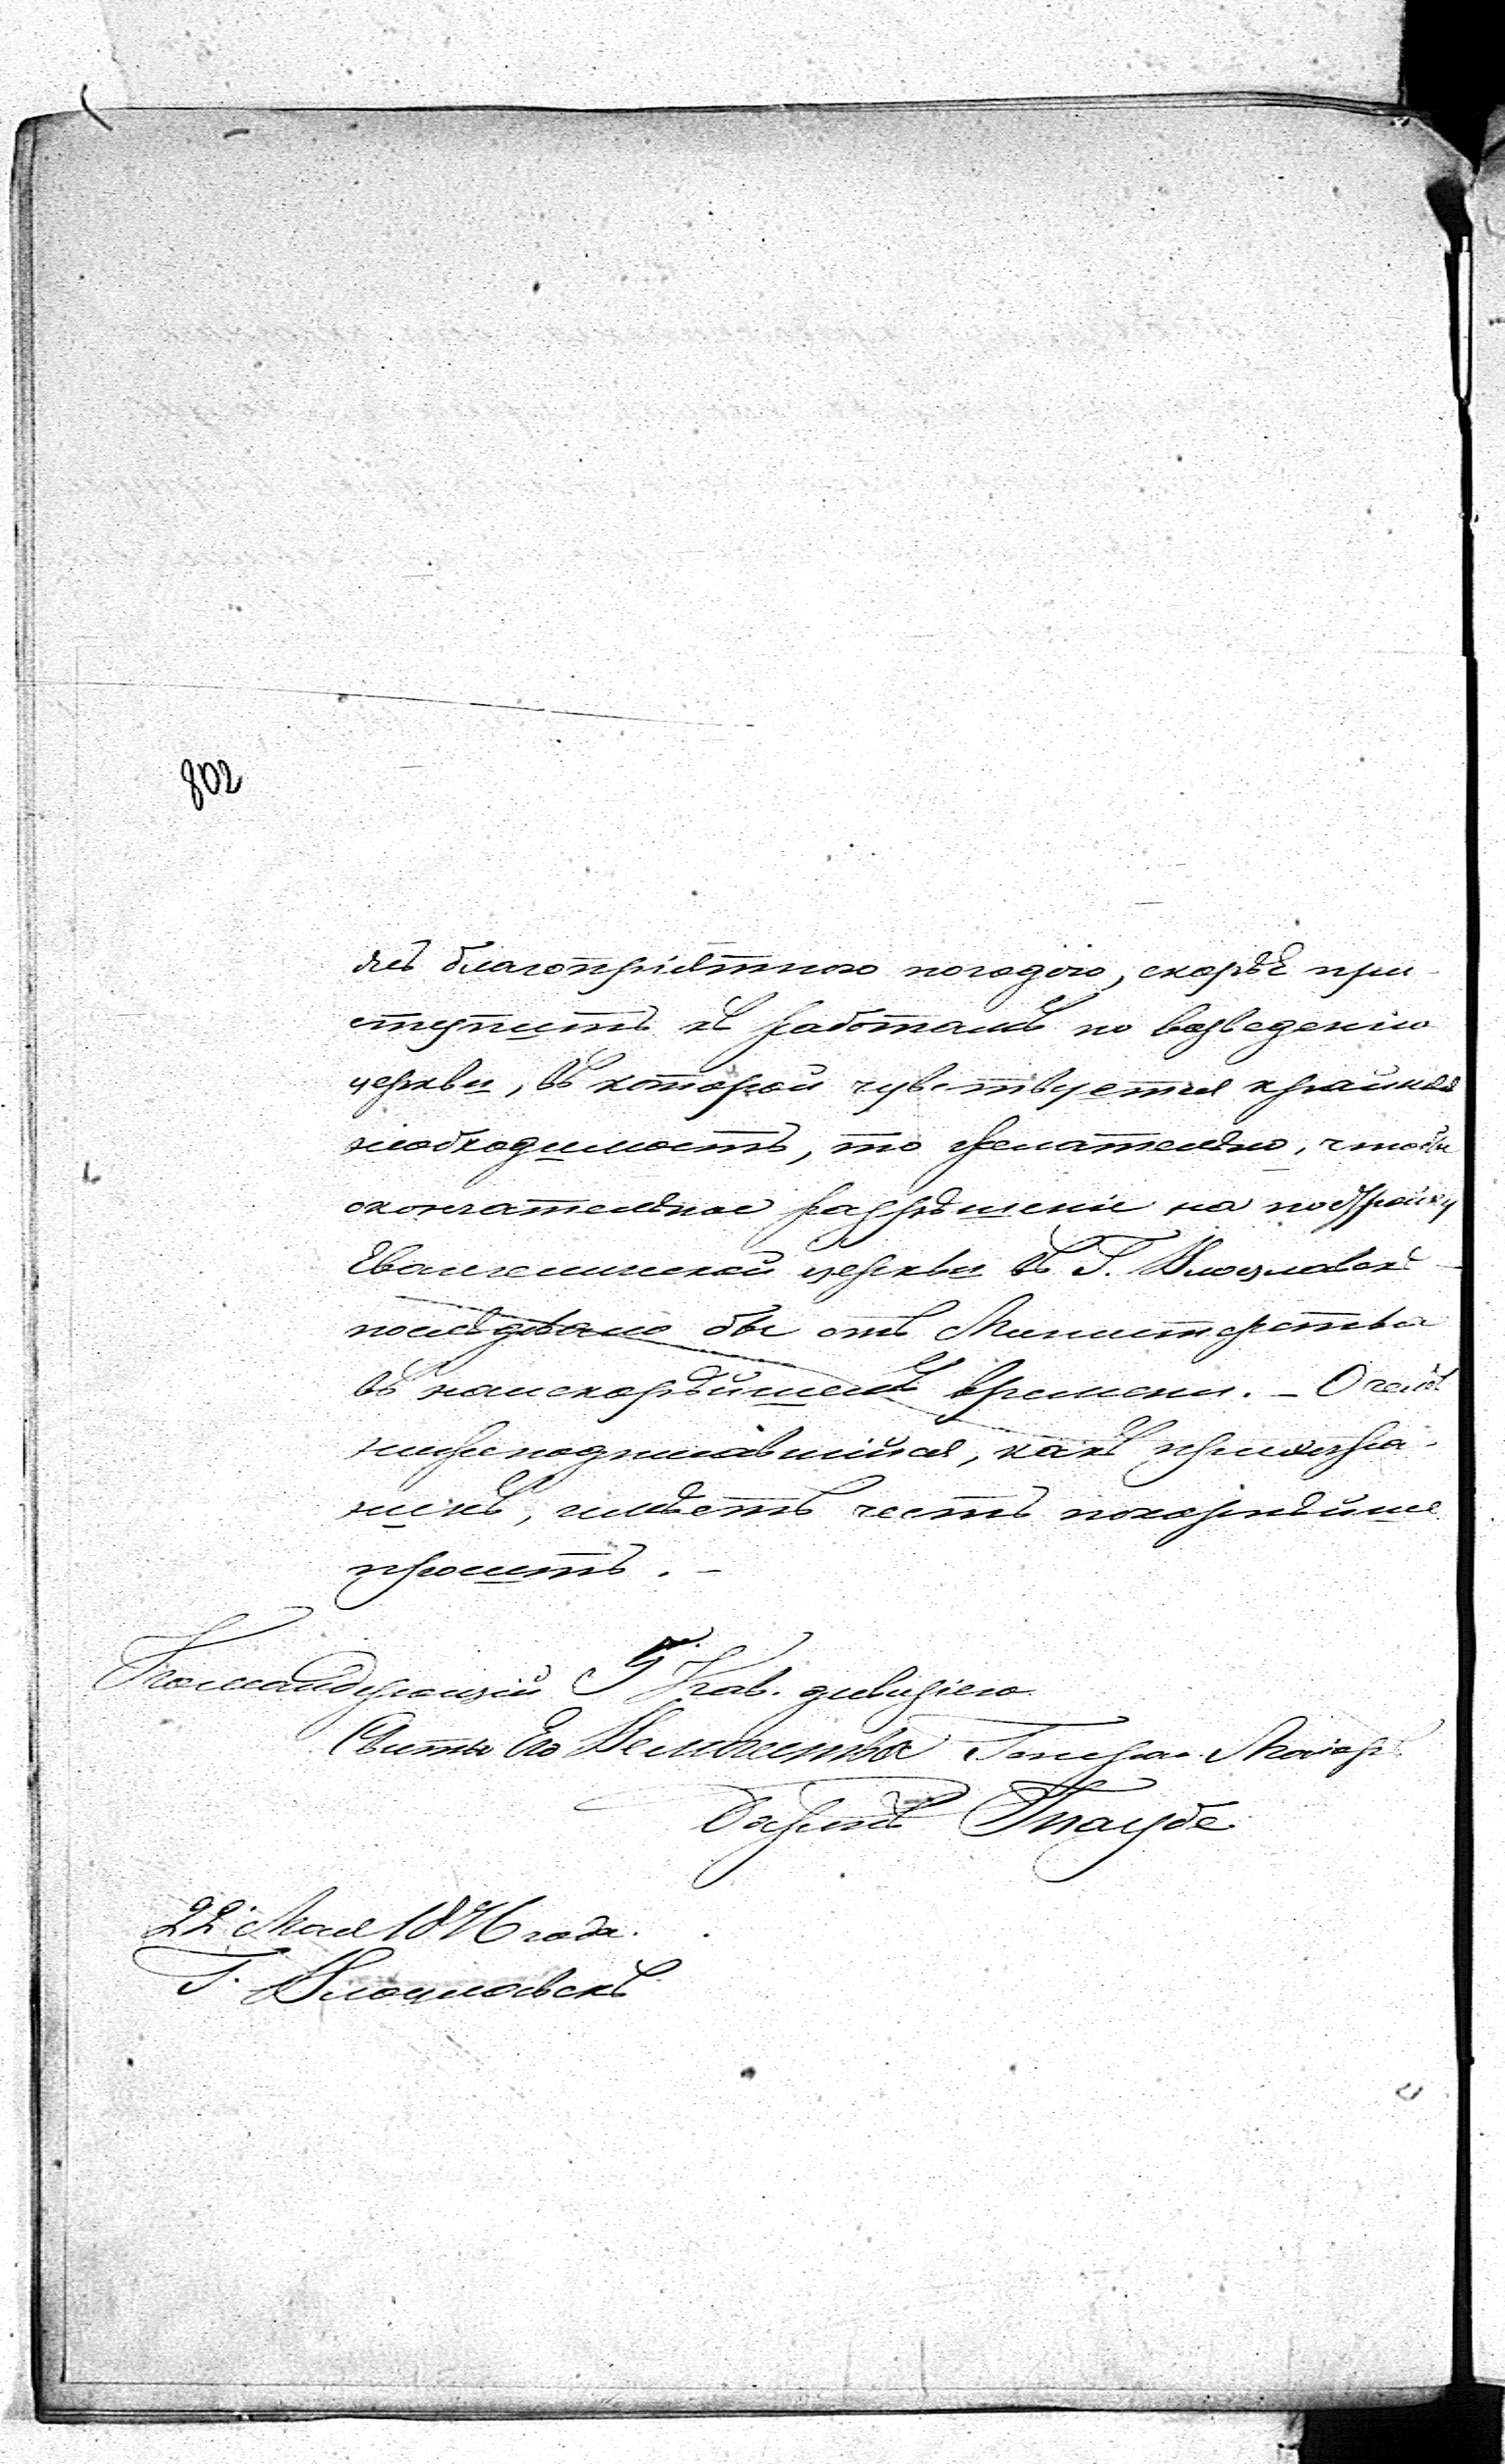 802
дъ благопріятною погодою, скорѣе при-
ступить къ работамъ по возведенію
церкви, въ которой чувствуется крайняя
необходимость, то желательно, чтобы
окончательное разрѣшеніе на постройку
Евангелической церкви въ Г. Влоцлавскѣ
послѣдовало бы отъ Министерства
въ наискорѣйшемъ времени. – О чемъ
нижеподписавшійся, какъ прихожа-
нинъ, имѣетъ честь покорнѣйше
просить. –
Командующій 5 Кав. дивизіею
Свиты Его Величества Генерал Маіоръ
Баронъ Таубе
22 Мая 1876 года.
Г. Влоцлавскъ